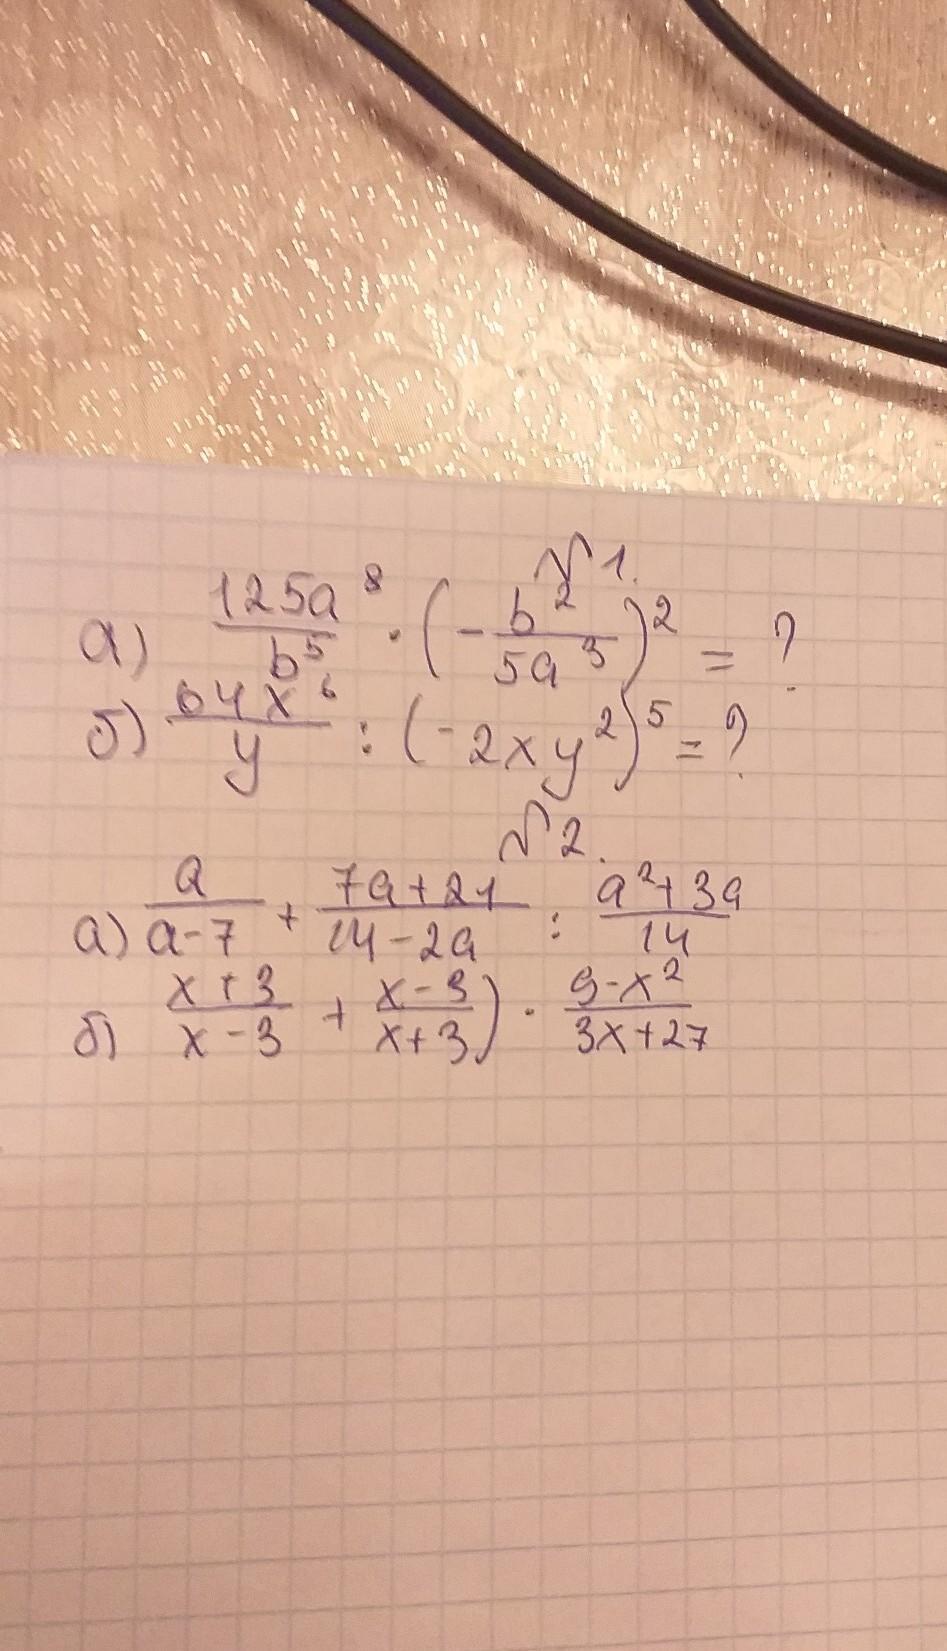 №1.
а) 125a⁸/b⁵ · (-b²/5a³)² = ?
б) 64x⁶/y : (-2xy²)⁵ = ?
№2.
а) a/a-7 + 7a+21/14-2a : a²+3a/14
б) x+3/x-3 + x-3/x+3) · 9-x²/3x+27